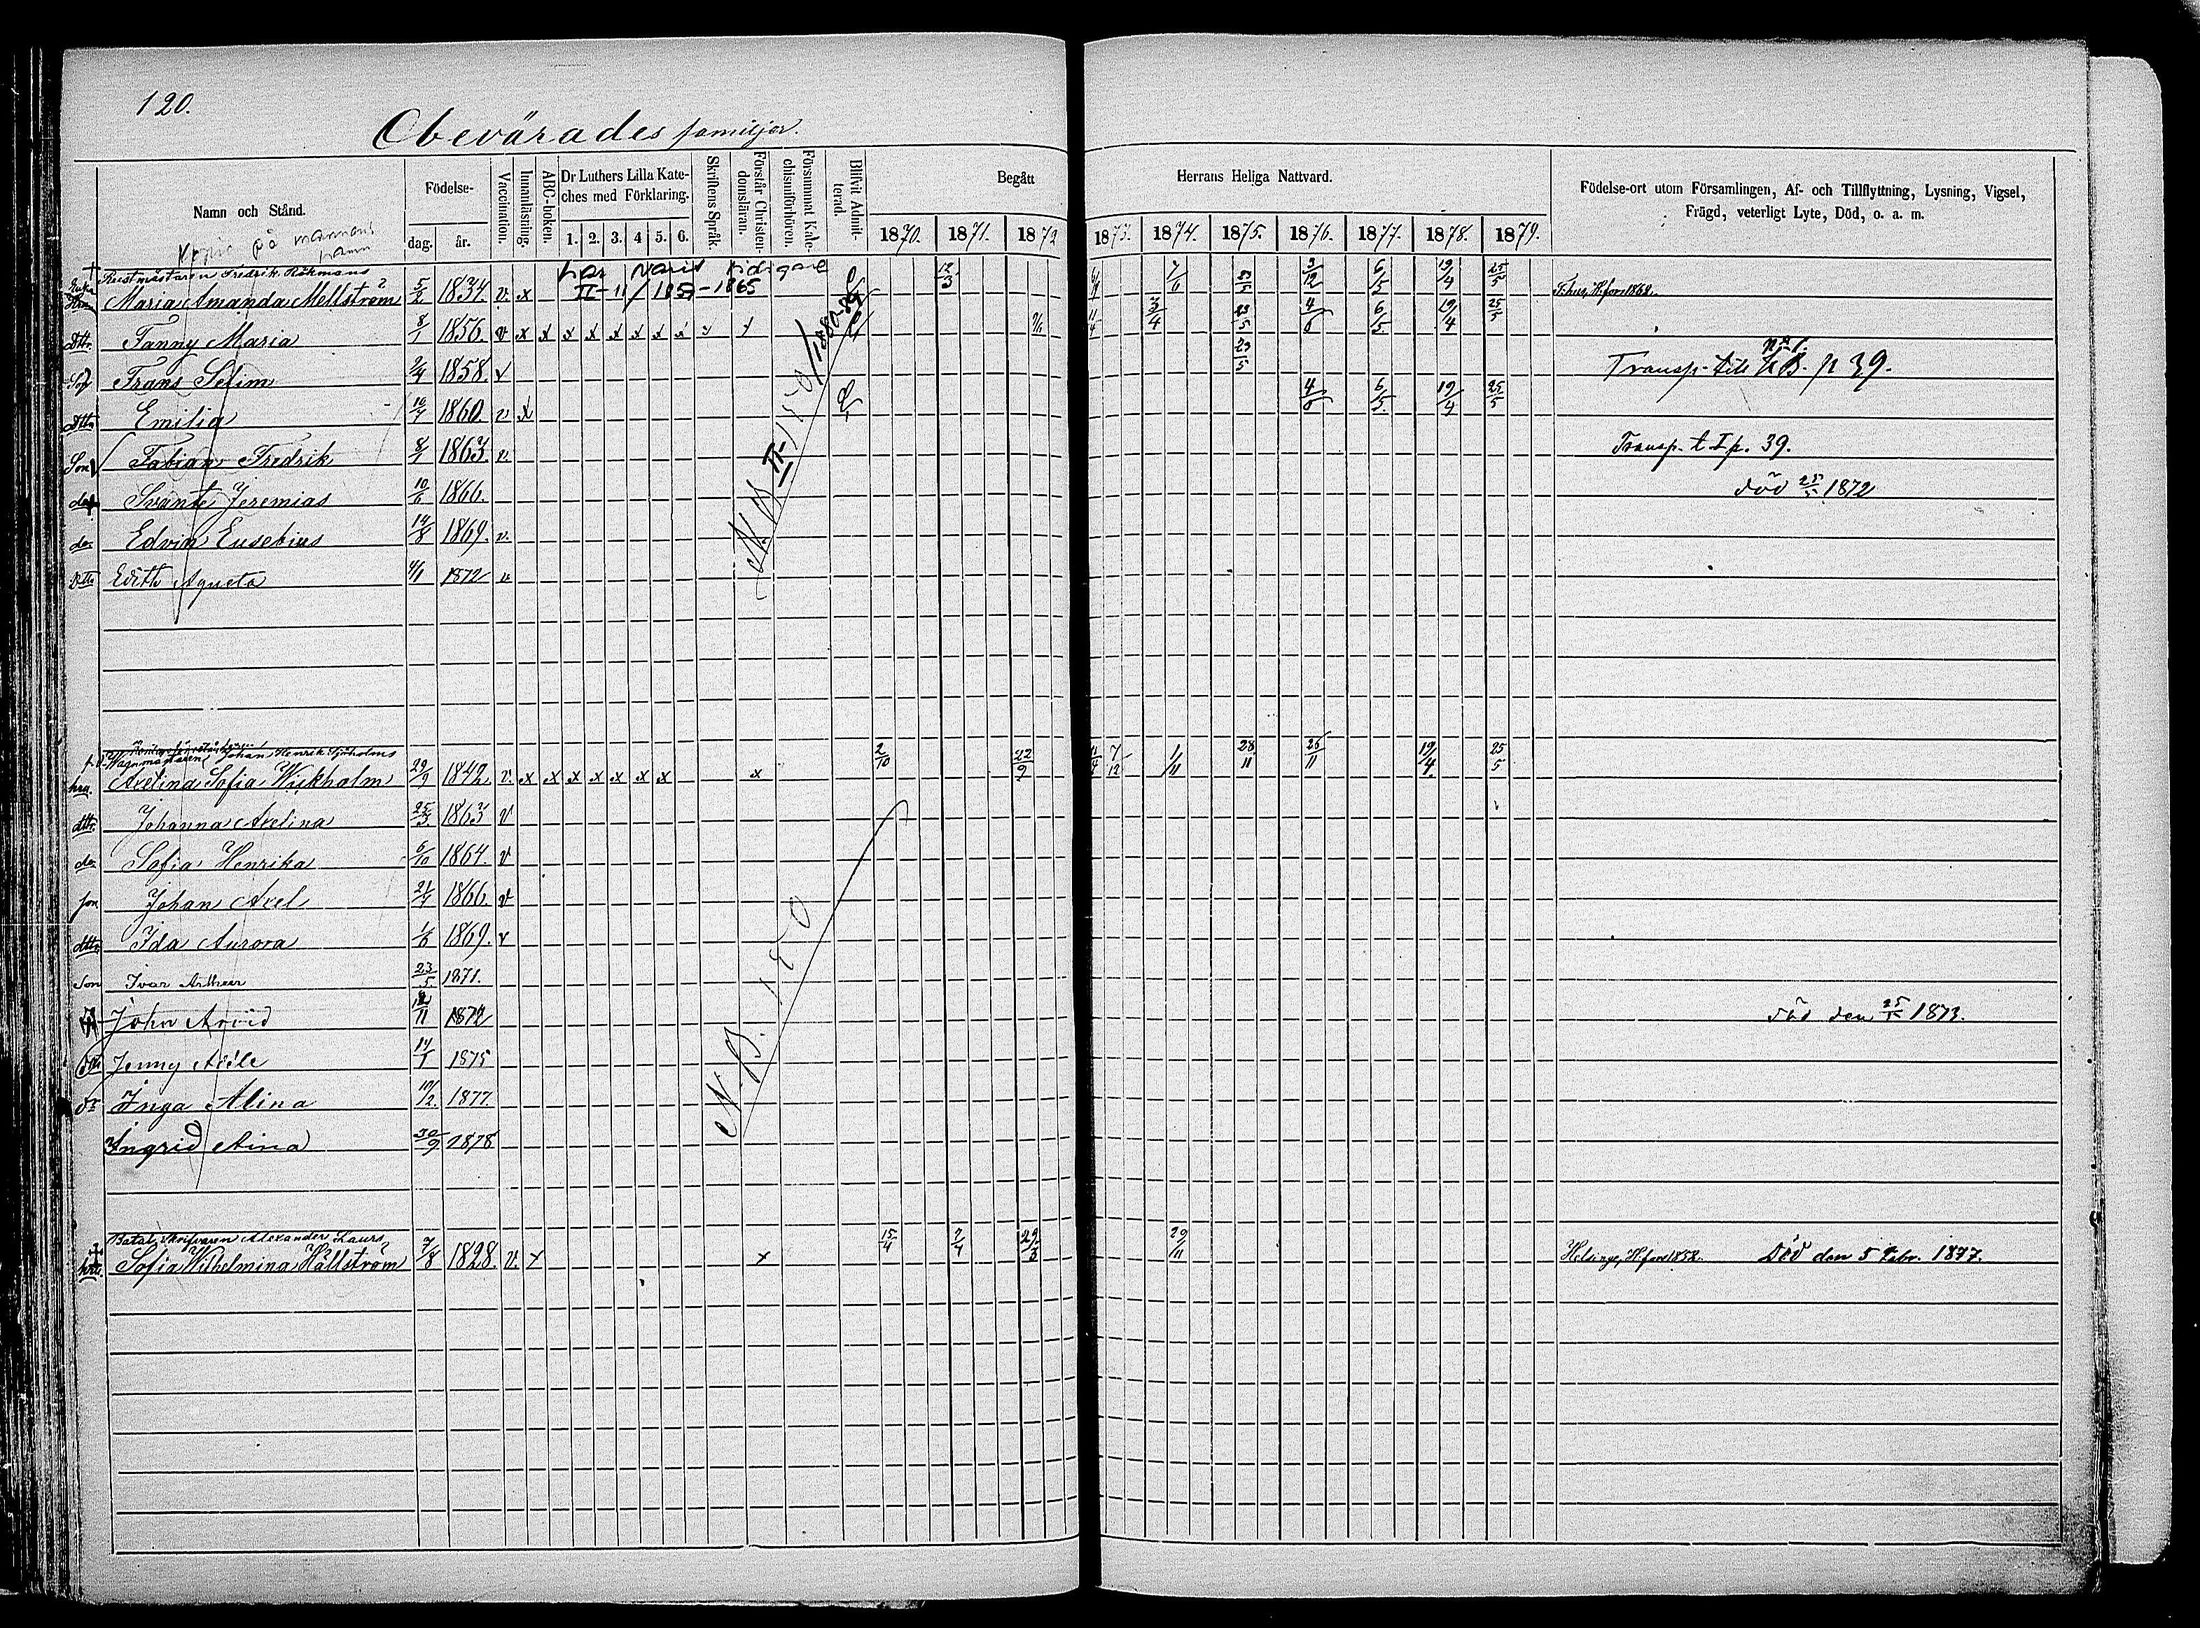 120.
Obevärades familjer.
Namn och Stånd.
Födelse-
dag. år.
Vaccination.
Innanläsning.
ABC-boken.
Dr Luthers Lilla Kate-
ches med Förklaring.
1. 2. 3. 4 5. 6.
Skriftens Språk.
Förstår Christen-
domsläran.
Försummat Kate-
chismiförhören.
Blifvit Admit-
terad.
Begått Herrans Heliga Nattvard.
1870. 1871. 1872 1873. 1874. 1875. 1876. 1877. 1878. 1879.
Födelse-ort utom Församlingen, Af- och Tillflyttning, Lysning, Vigsel,
Frägd, veterligt Lyte, Död, o. a. m.
på mannens
namn
Rustmästaren Fredrik Råhmans har varit tidigare
Enka Maria Amanda Mellström 5/2 1834. v. x II-11/1859-1865 12/3 7/6 23/5 3/12 6/5 19/4 25/5 H:fors 1868.
Dttr. Fanny Maria 8/1 1856. v x x x x x x x 11/4 3/4 23/5 4/6 6/5 19/4 25/5
Son Frans Selim 2/4 1858. v 23/5 Transp. till KB. p 39.
Dttr Emilia 10/7 1860. v x 4/6 6/5 19/4 25/5
Son Fabian Fredrik 8/1 1863. v. Transp. t. I p. 39.
do Svante Jeremias 10/6 1866. död 25/5 1872
do. Edvin Eusebius 14/8 1869. v.
Dttr Edith Agneta 4/1 1872 v
N. B. II
Wagnmästaren Johan Henrik Sjöholms 2/10 22/9 7/12 1/11 28/11 26/11 19/4 25/5
hru. Axelina Sofia Wickholm 29/9 1842. v. x x x x x x x x
dttr. Johanna Axelina 25/3 1863 v
do. Sofia Henrika 6/10 1864. v
son Johan Axel 21/7 1866. v
dttr. Ida Aurora 1/6 1869. v
Son Ivar Arthur 23/5 1871.
John Arvid 12/11 1872 död den 25/5 1873.
Dttr Jenny Adéle 14/1 1875
Dr Inga Alina 10/2 1877.
Ingrid Aina 30/9 1878
N. B. 180
Batal. Skrifvaren Alexander Laurs 15/4 7/4 29/3 29/11
Sofia Wilhelmina Hällström 7/8 1828. v. x x Helsinge, H:fors 1852. Död den 5 Febr. 1877.